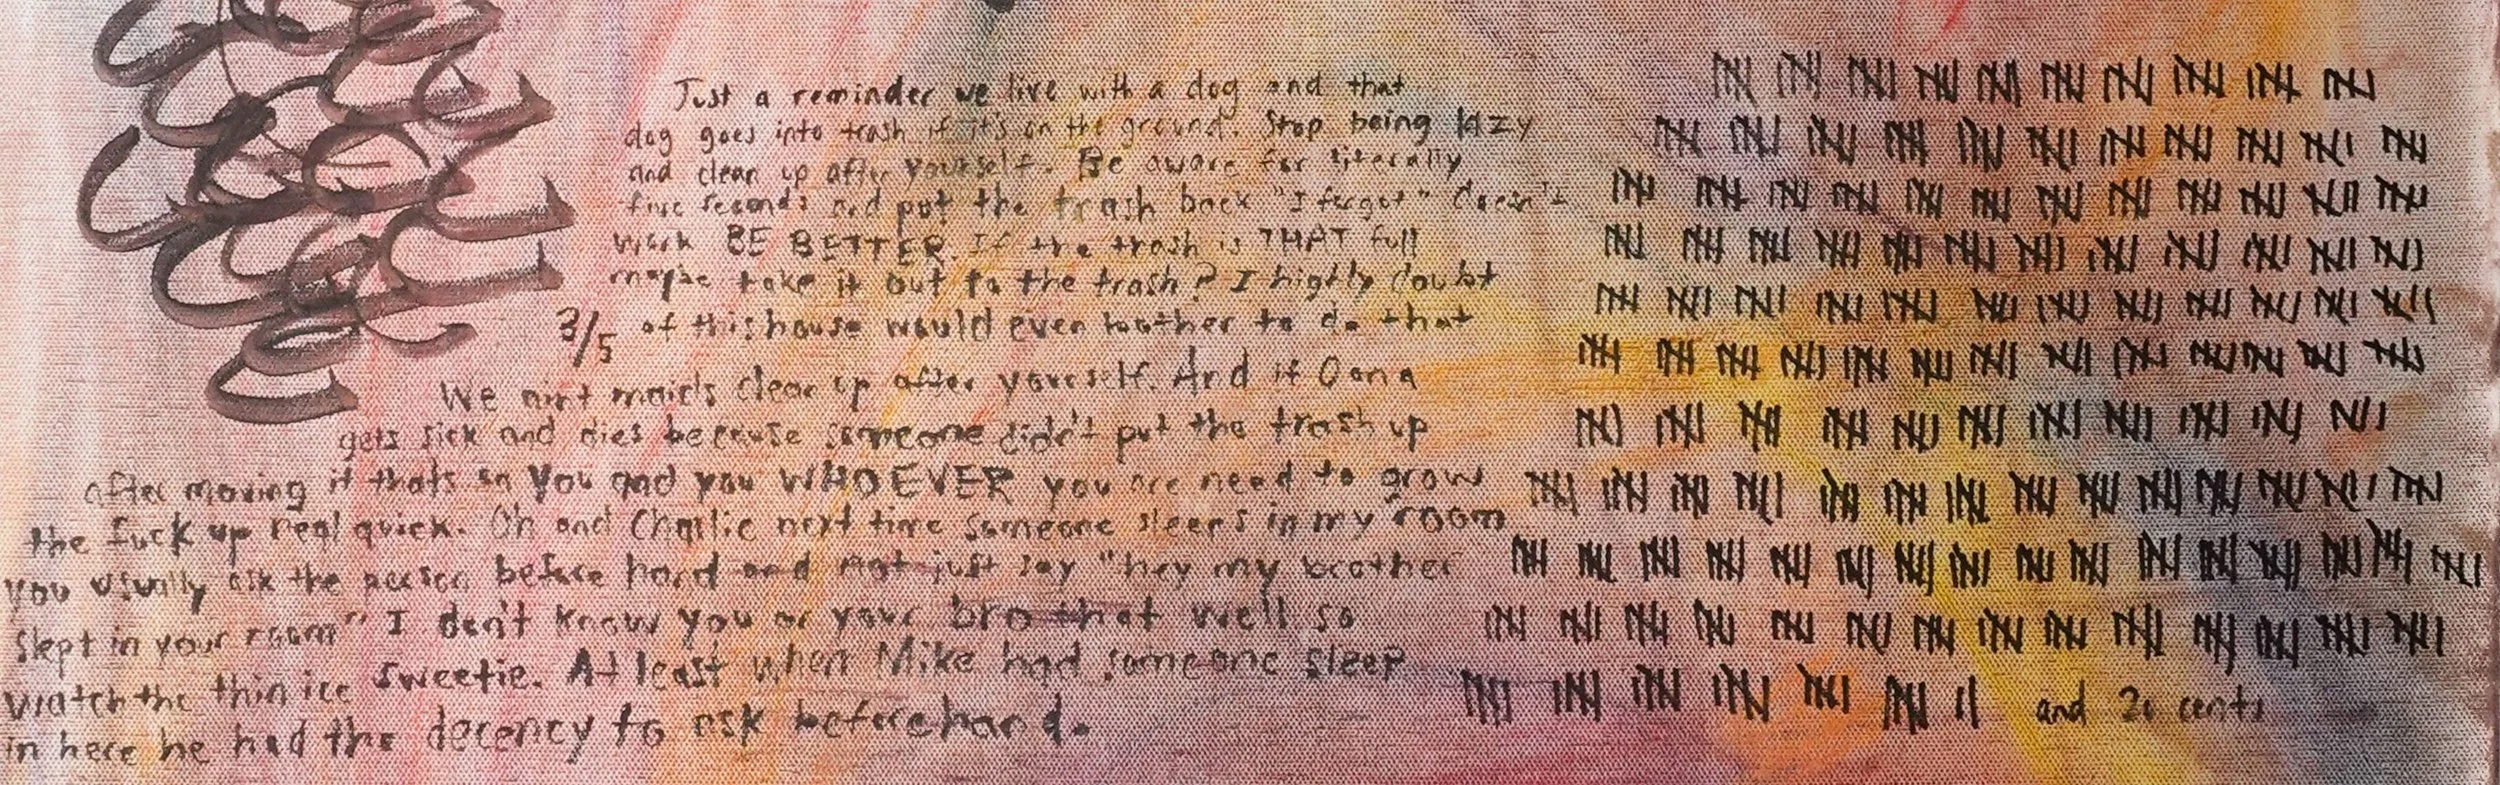 Just a reminder we live with a dog and that
dog goes into trash if it's on the ground. Stop being lazy
and clean up after yourself. Be aware for literally
five seconds and put the trash back "I forgot" doesn't
work BE BETTER. If the trash is THAT full
maybe take it out to the trash? I highly doubt
3/5 of this house would even bother to do that
We ain't maids clean up after yourself. And if Oana
gets sick and dies because someone didn't put the trash up
after moving it thats on You and you WHOEVER you are need to grow
the fuck up real quick. Oh and Charlie next time someone sleeps in my room
you usually ask the person before hand and not just say "hey my brother
slept in your room" I don't know you or your bro that well so
watch the thin ice sweetie. At least when Mike had someone sleep
in here he had the decency to ask beforehand.
and 20 cents